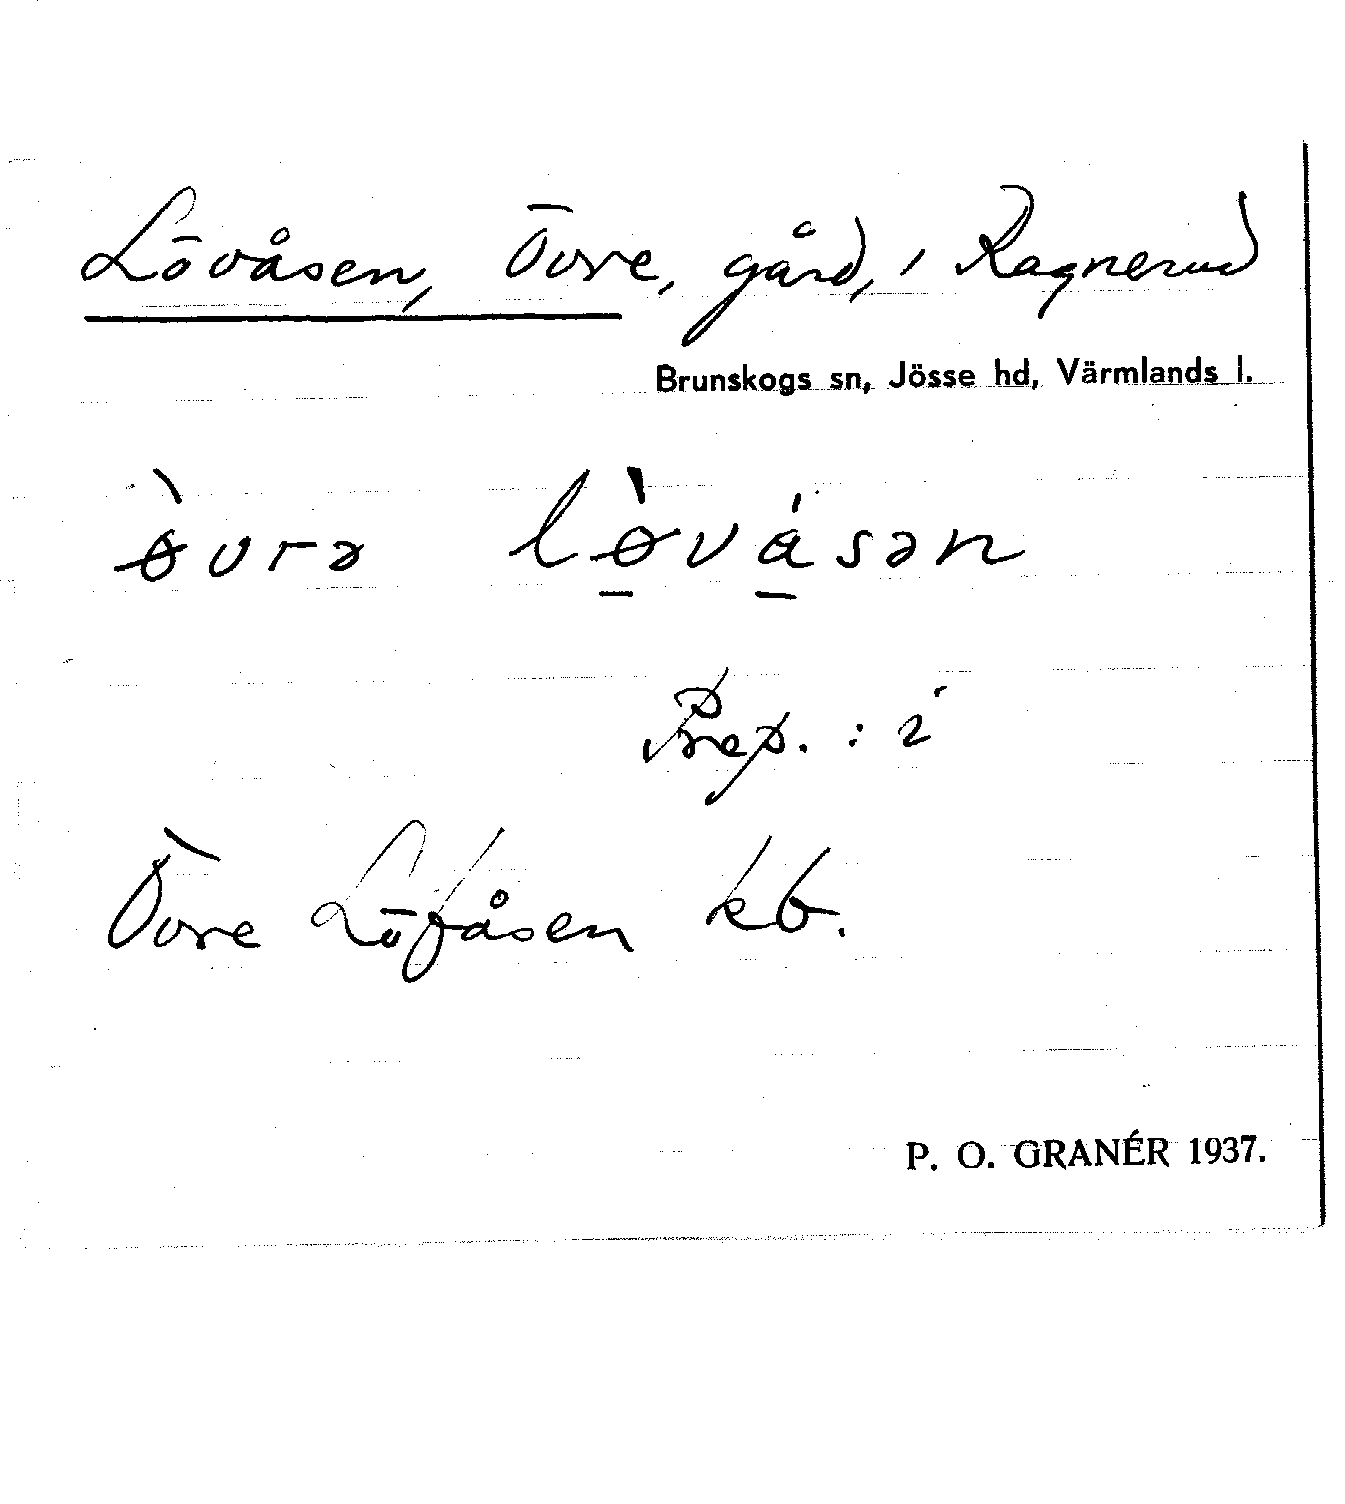 Lövåsen, Övre, gård, i Ragnerud
Brunskogs sn, Jösse hd, Värmlands l.
ø̀vrə lø̱̀vǻ̱sən
Prep. : i
Övre Löfåsen kb.
P. O. GRANÉR 1937.